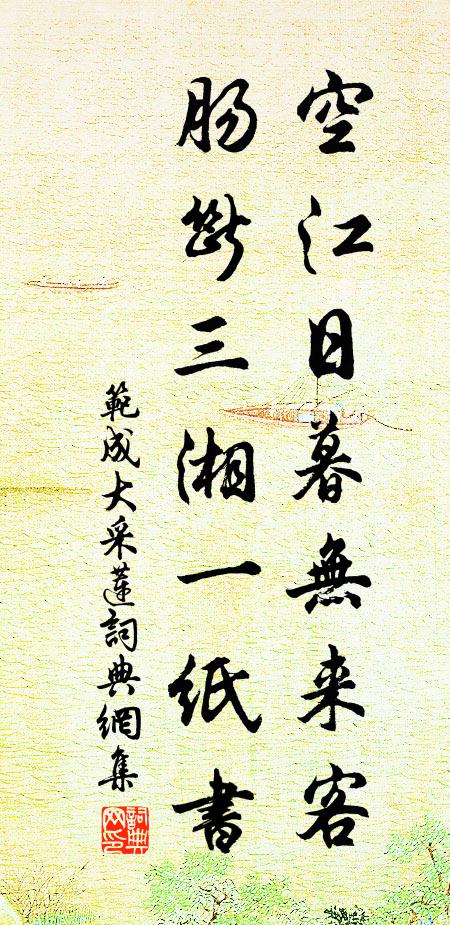 空江日暮無来客
腸斷三湘一紙書
範成大采蓮詞典網集
詞典网印